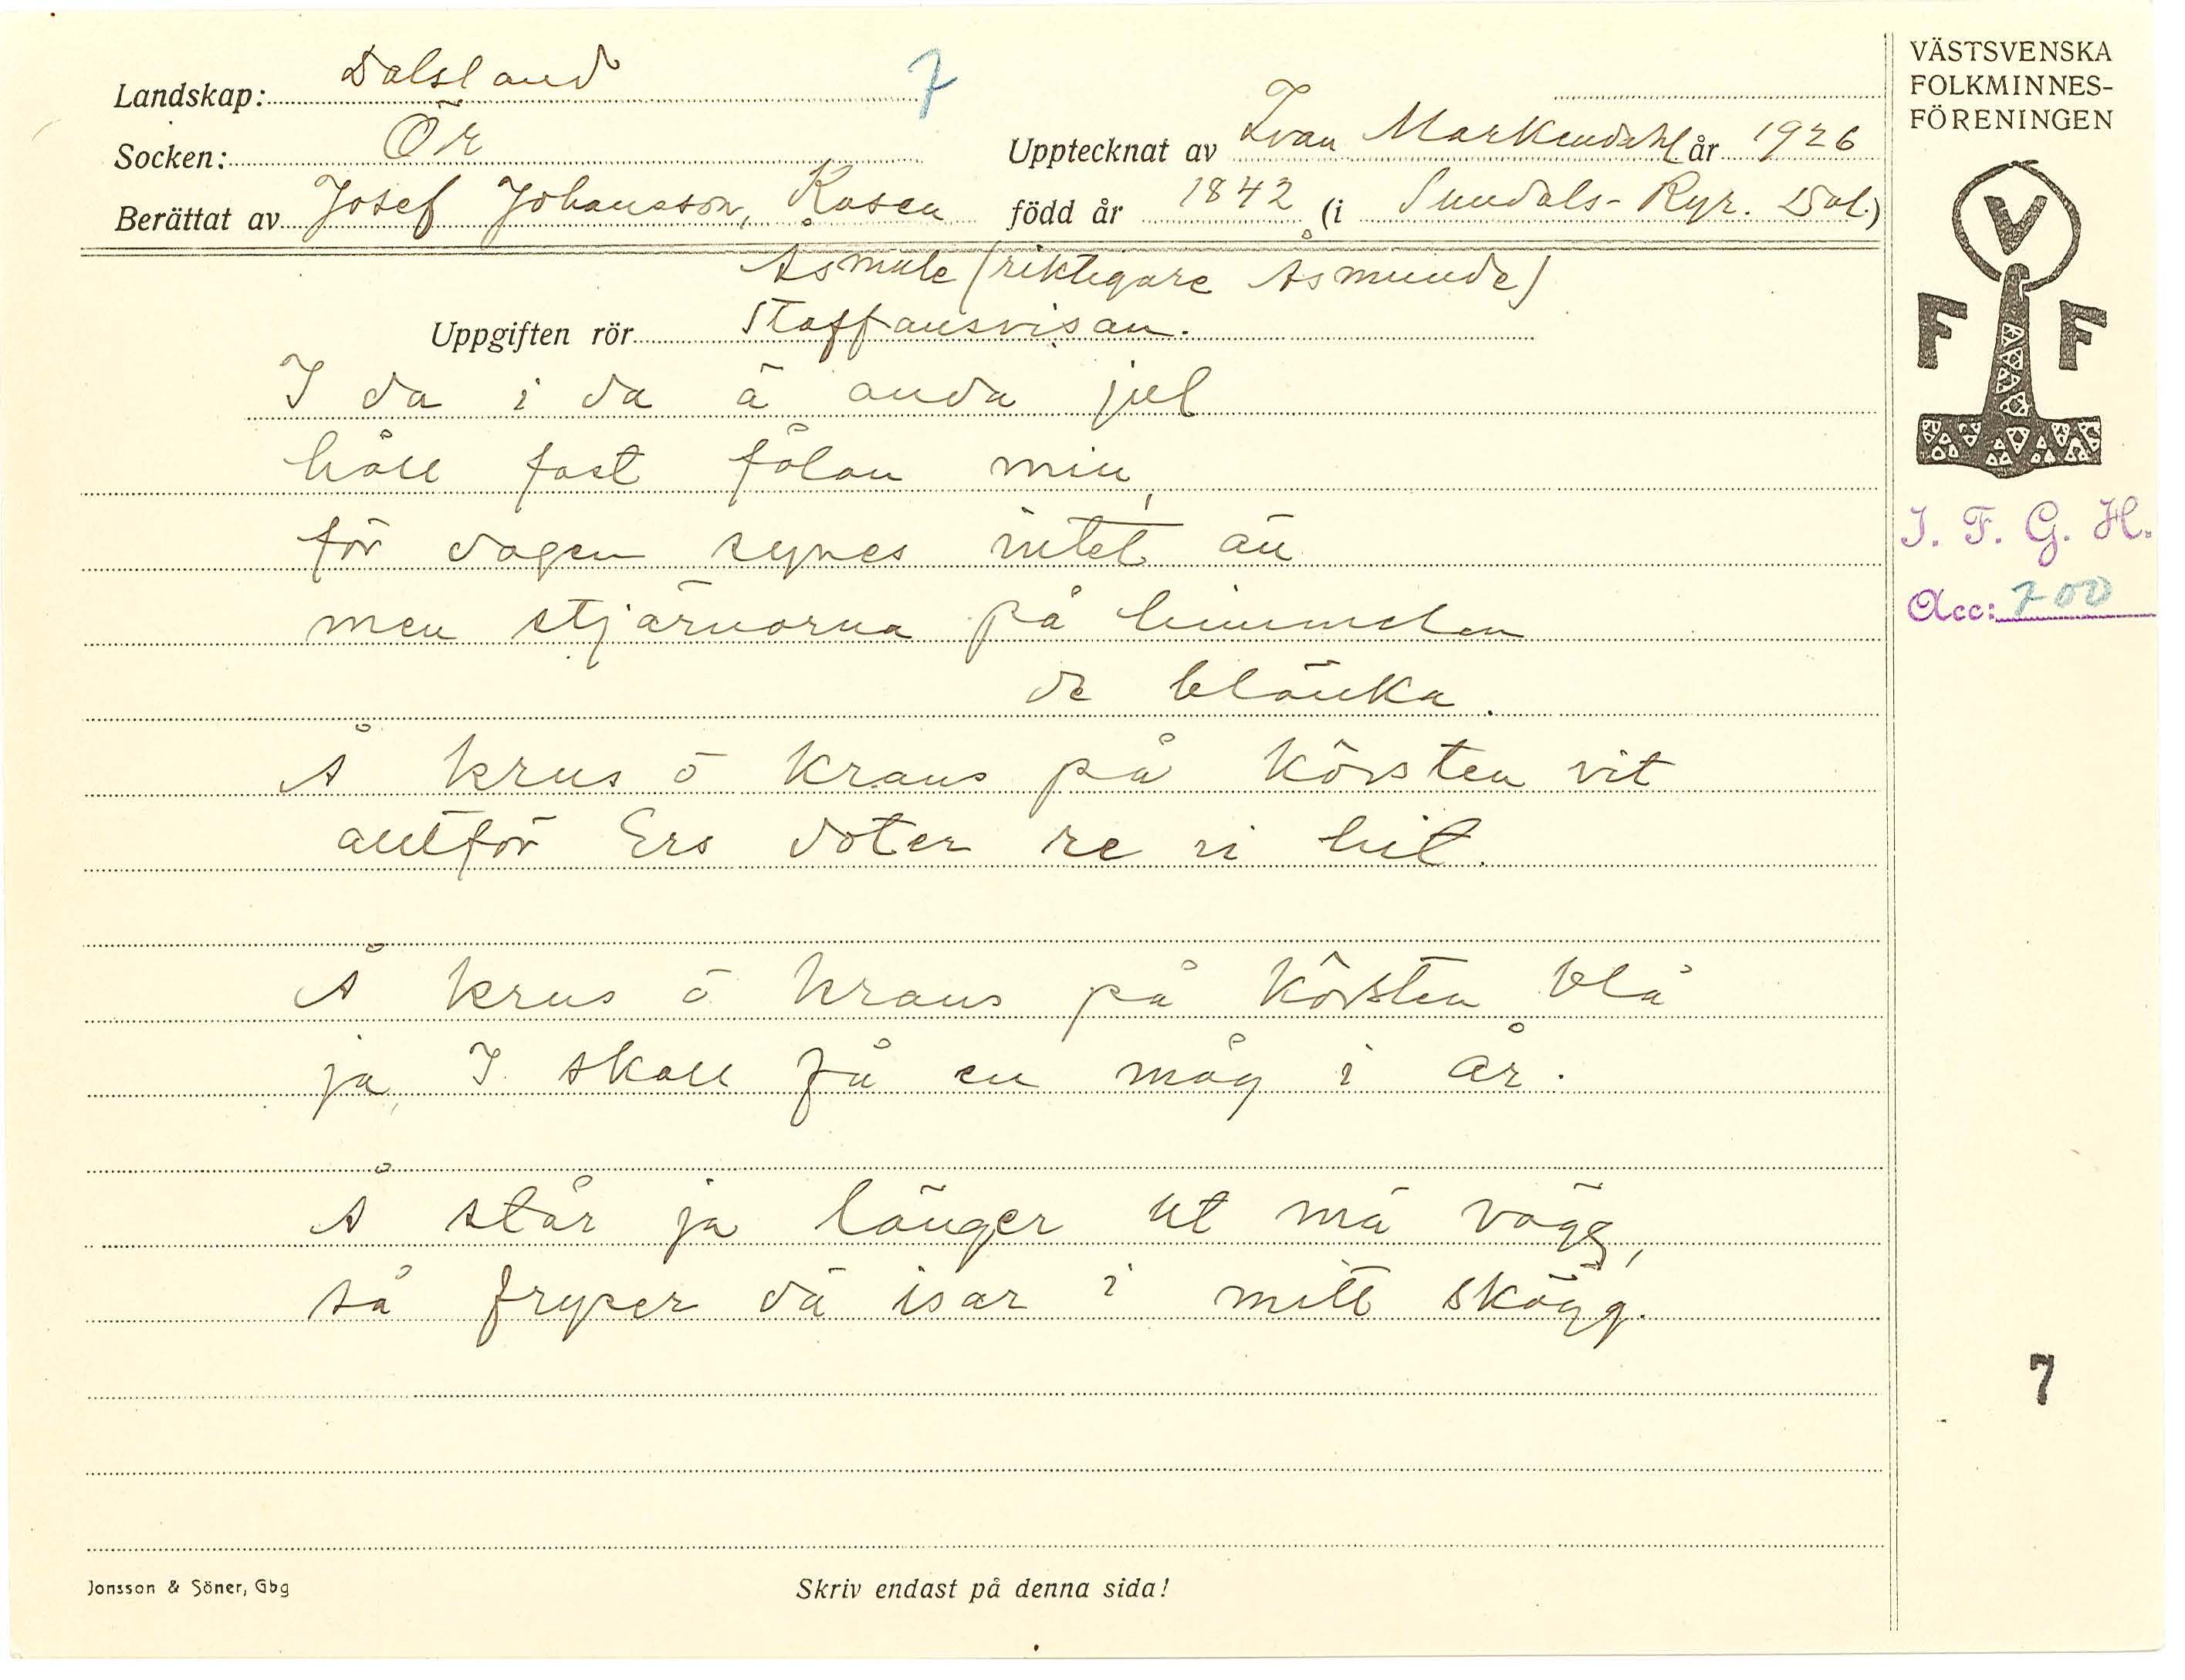 Landskap: Dalsland
7
Socken: Ör
Upptecknat av Ivan Markendahl år 1926
Berättat av Josef Johansson, Kasen
född år 1842 (i Sundals-Ryr. Dal.)
Åsmule (riktigare Åsmunde)
Uppgiften rör Staffansvisan.
I da i da ä anda jul
håll fast fålan min,
för dagen synes intet än
men stjärnorna på himmelen
de blänka.
Å krus ö krans på körsten vit
allt för Ers doter re vi hit.
Å krus ö krans på körsten blå
ja, I skall få en måg i år.
Å står ja länger ut mä vägg,
så fryser dä isar i mitt skägg.
Jonsson & Söner, Gbg
Skriv endast på denna sida!
VÄSTSVENSKA
FOLKMINNES-
FÖRENINGEN
V
F F
I. F. G. H.
Acc: 700
7